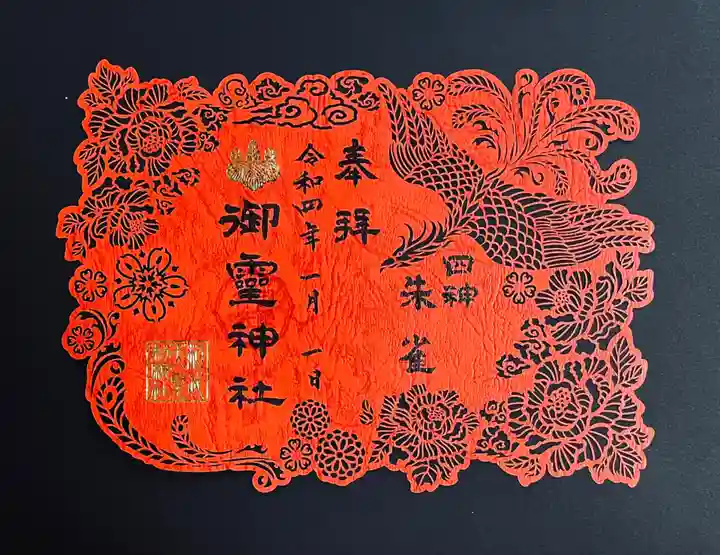 四神
朱雀
奉拝
令和四年 一月 一日
御靈神社